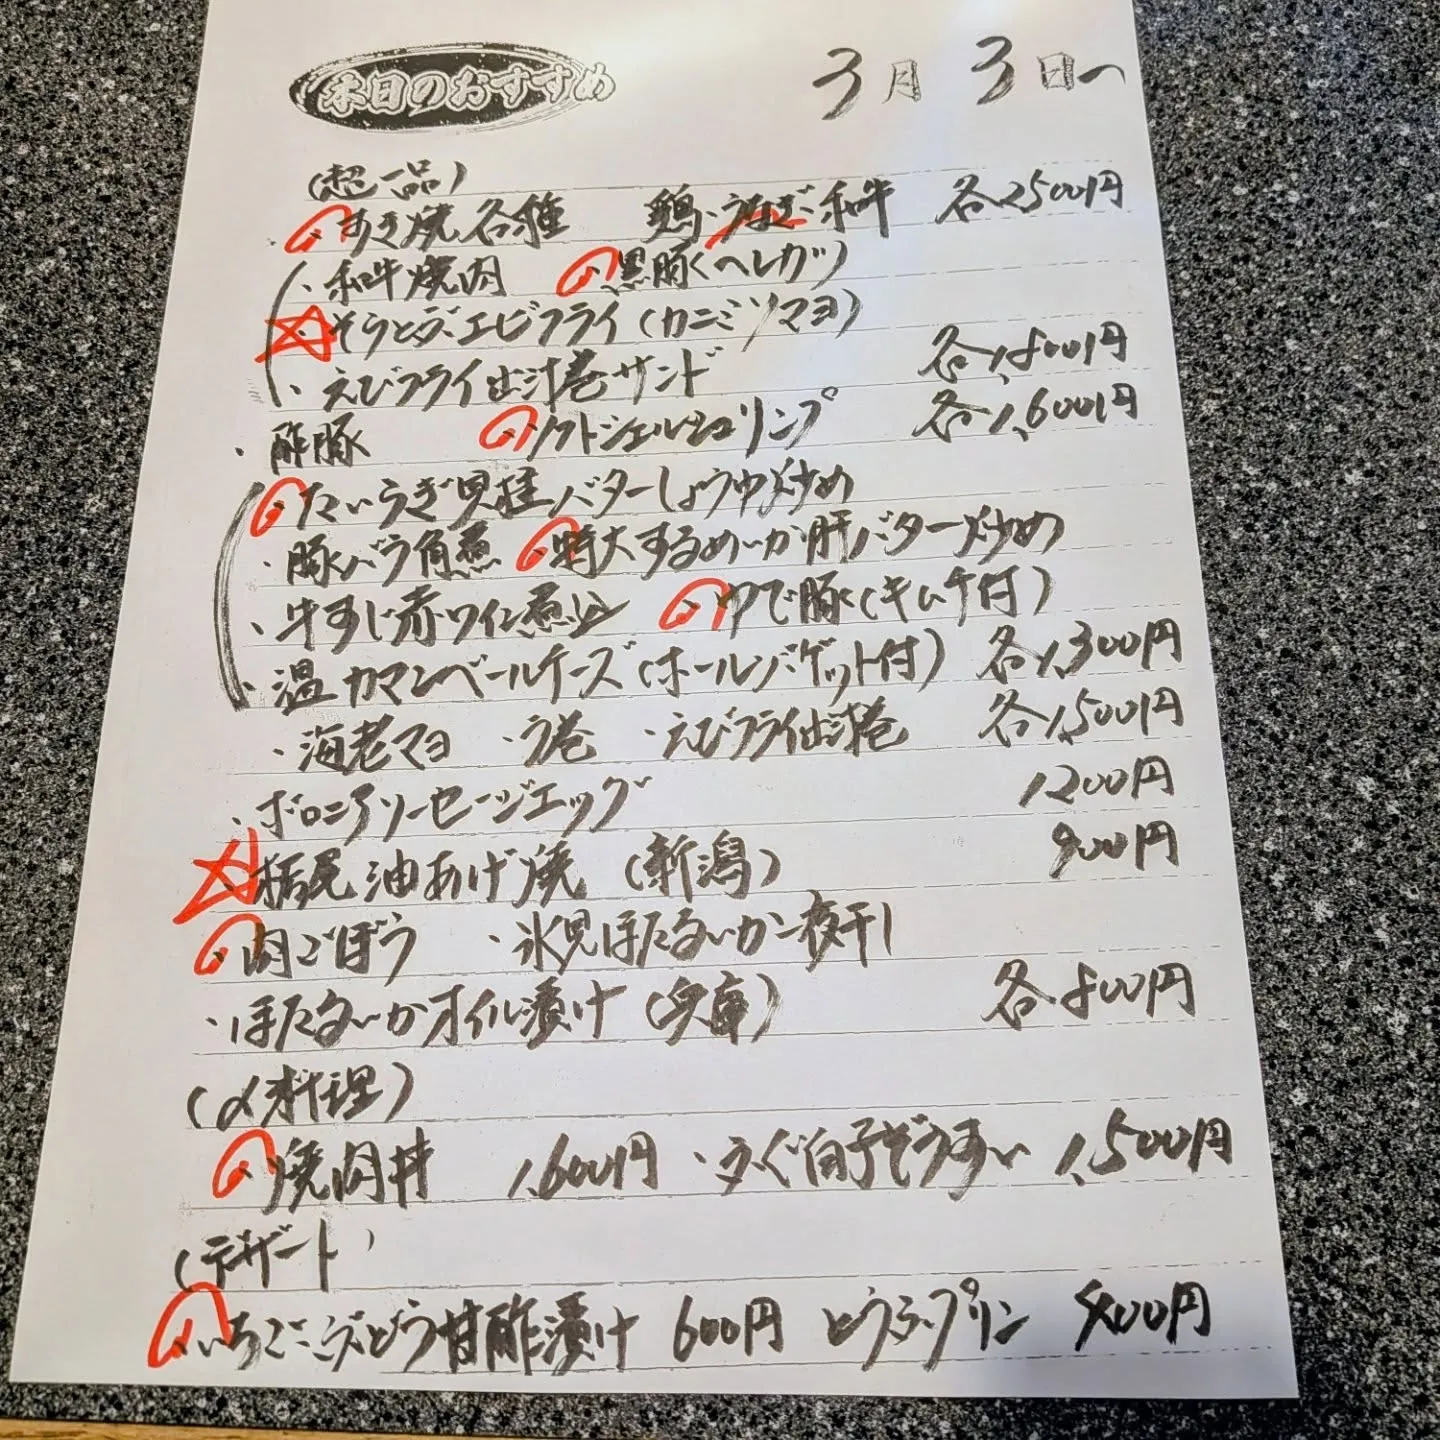 本日のおすすめ 3月3日〜
(超一品)
・すき焼各種 鶏・うなぎ・和牛 各2500円
・和牛焼肉 ・黒豚くヘレカツ
・そうとぶエビフライ(カニミソマヨ)
・えびフライ出汁巻サンド 各1,800円
・酢豚 ・ソフトシェルシュリンプ 各1,600円
・たいらぎ貝柱バターしょうゆ炒め
・豚バラ角煮 ・特大するめいか肝バター炒め
・牛すじ赤ワイン煮込 ・ゆで豚(キムチ付)
・温カマンベールチーズ(ホールバゲット付) 各1,300円
・海老マヨ ・う巻 ・えびフライ出汁巻 各1,500円
・ボロニアソーセージエッグ 1200円
・栃尾油あげ焼(新潟) 900円
・肉ごぼう ・氷見ほたるいか一夜干し
・ほたるいかオイル漬け(兵庫) 各800円
(〆料理)
・焼肉丼 1,600円 ・ふぐ白子ぞうすい 1,500円
(デザート)
・いちごこぶどう甘酢漬け 600円 とうふプリン 400円